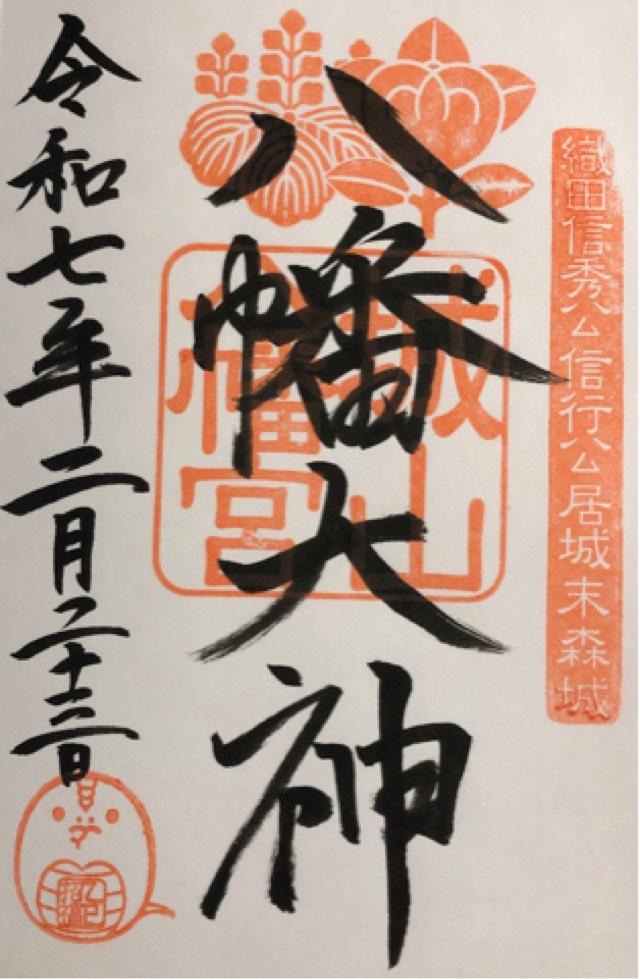 織田信秀公信行公居城末森城
八幡大神
城山
八幡宮
令和七年二月二十三日